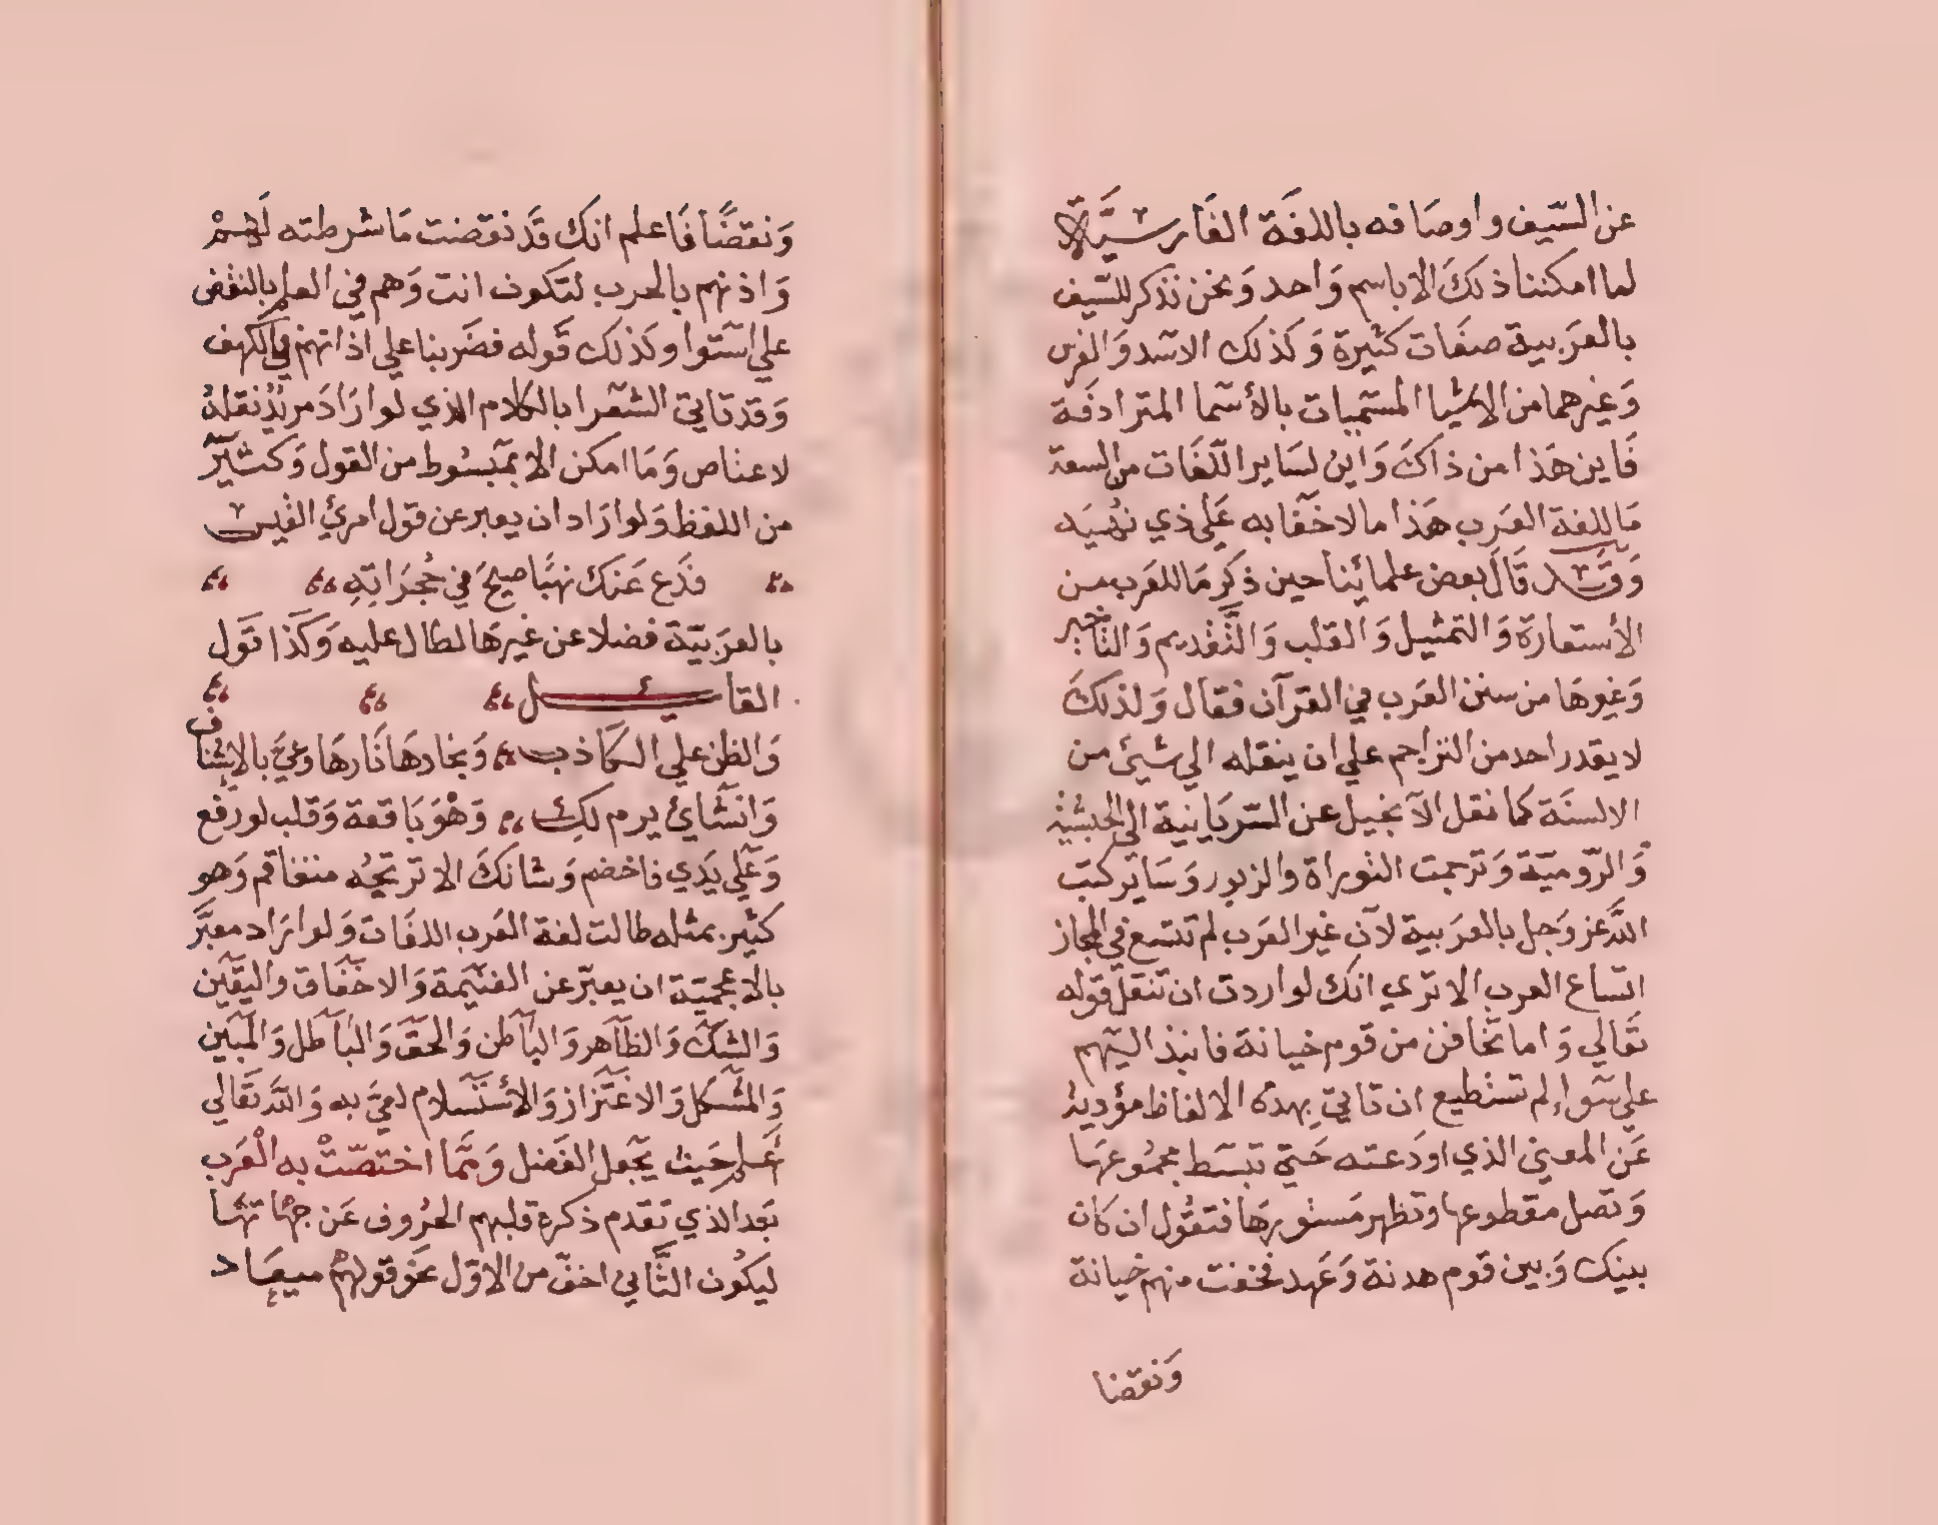 عن السّيف واوصَافه باللغَة الفَارسيَّة لا
لما امكننا ذلكَ الا باسم وَاحد وَنحن نذكر للسّيف
بالعَربية صفَات كثيرة وَكذلك الاسَد وَالفرس
وَغيرهما من الاشيا المسَّميات بالأسَما المترادفَة
فَاين هَذا من ذاكَ وَاين لسَاير اللّغَات من السعة
مَا للغة العَرب هَذا ما لا خَفَا به عَلى ذي نُهيَه
وَقَد قَالَ بعض علمائِنا حين ذكر مَا للعَرب من
الأستعارَة وَالتمثيل وَالقلب وَالتَّقديم وَالتاخير
وَغيرهَا من سنن العَرب في القرآن فقال وَلذلكَ
لا يقدر احد من التراجم علي ان ينقله الي شيئ من
الالسنَة كما نقل الآنجيل عن السّريَانية الي الحبشيَّة
وَالرّوميّة وَترجمت التوراة والزبور وَسَاير كتب
اللَّه عز وَجل بالعرَبية لآن غير العَرب لم تتسع في المجاز
اتسَاع العرب الا تري انك لو اردت ان تنقل قوله
تَعَالي وَاما تخَافن من قوم خيانة فانبذ اليَهم
علي سَواءٍ لم تستطيع ان تاتي بهذه الالفاظ مؤدية
عَن المعني الذي اودَعته حَتي تبسَط مجمُوعهَا
وَتصل مقطوعها وتظهر مَستورهَا فتقُول ان كان
بينك وَبين قوم هدنة وَعَهد فخفت منهم خيانة
وَنقضا
وَنقضًا فَاعلم انكَ قَد نقضت مَا شرطته لَهمْ
وَاذنهم بالحرب لتكون انت وَهم في العلم بالنقض
علي استَوا وكَذلك قَوله فضَربنا علي اذانهم في الكهف
وَقد تاتي الشعَرا بالكلام الذي لو ارَادَ مريدٌ نقلهُ
لاعتاص وَمَا امكن الا بمَبسُوط من القول وَكثيَر
من اللفظ وَلو ارَاد ان يعبر عن قول امرئ القيس
فدَع عَنكَ نهبًا صيحَ فِي حُجرَاتِهِ
بالعرَبيّة فضلا عن غيرهَا لطال عليه وَكَذا قَول
القائــل
وَالظن علي الكَاذب وَنجارهَا نَارهَا وعيَّ بالاِسْناف
وَانشَائ يرم لكِ وَهْوَ بَاقعة وَقلب لو رفع
وَعَلي يَدَي فاخضم وَشانكَ الا تركَهُ متفاقم وَهو
كثير. بمثله طالت لغة العَرب اللغَات وَلو ارَاد معبّر
بالاعجَميّة ان يعبّر عن الغنيَمة وَالاخفَاق واليقَين
وَالشَك وَالظآهر وَالبآطن وَالحقَ وَالبآطل وَالمبَين
وَالمشَكل وَالاغتَزاز وَالأستَسَلام لعيَّ به وَاللَّه تَعَالي
أعَلم حَيث يجَعل الفَضل وَممَّا اختصّتْ به الْعَرَب
بَعد الذي تَقدم ذكره قلبهم الحرُوف عَن جهَاتهَا
ليكُون الثَّاني اخفّ من الاوّل نحَو قولهمْ ميعَاد